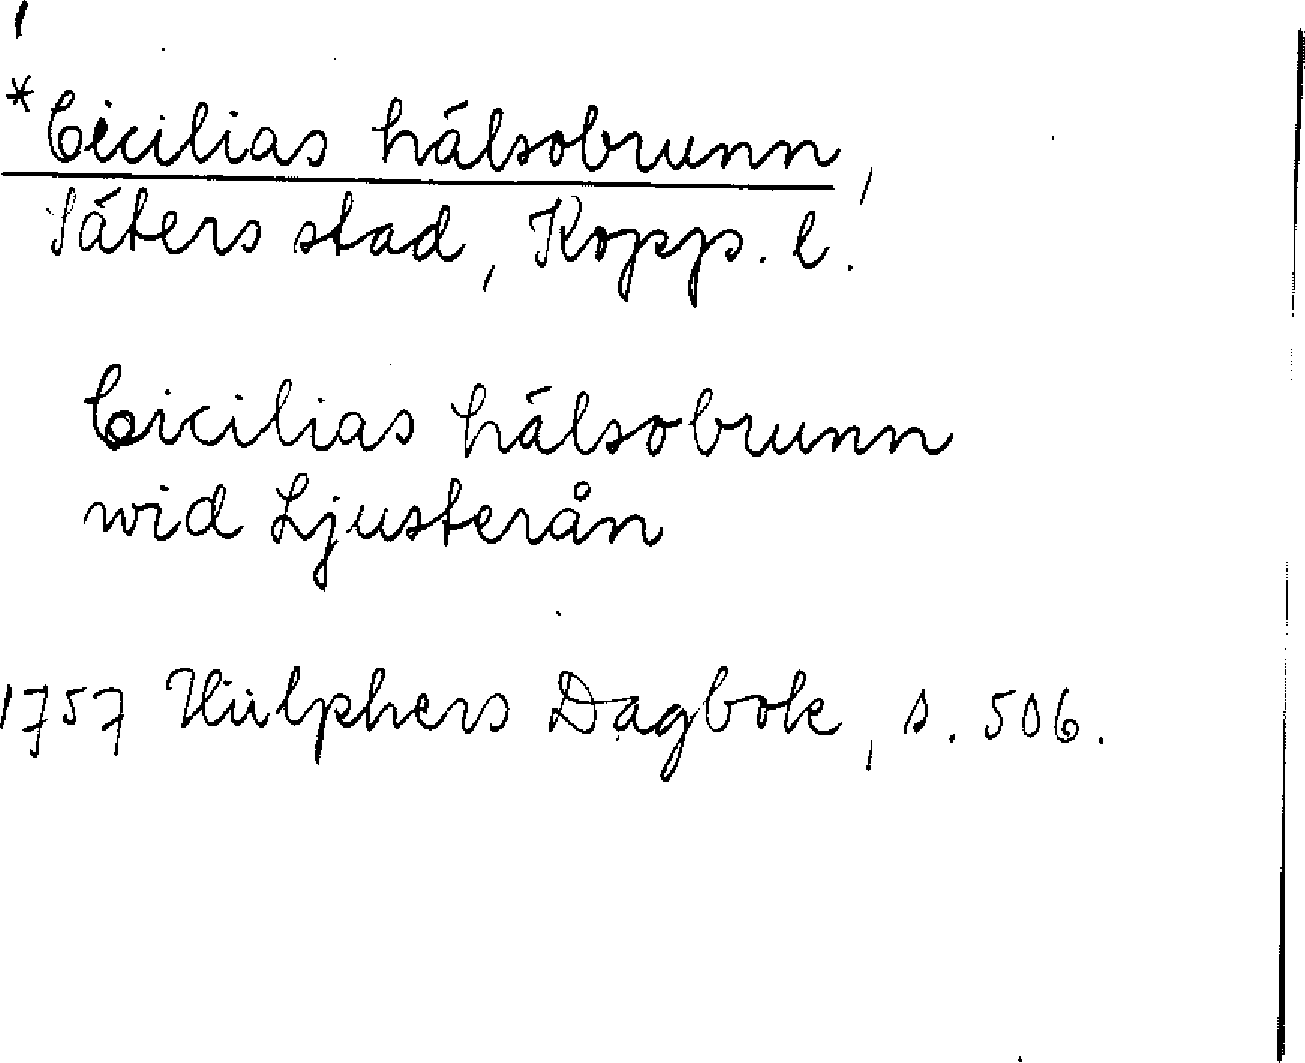 *Cicilias hälsobrunn,
Säters stad, Kopp. l.
Cicilias hälsobrunn
wid Ljusterån
1757 Hülphers Dagbok, s. 506.